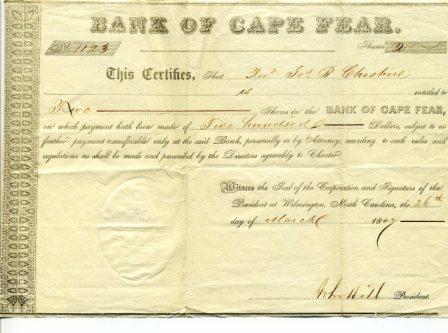 BANK OF CAPE FEAR.
No. 1123 Shares 2
This Certifies, That Revd. Jos. B Cheshire
is entitled to
Two Shares in the BANK OF CAPE FEAR,
on which payment hath been made of Two hundred Dollars, subject to no
further payment transferable only at the said Bank, personally or by Attorney, according to such rules and
regulations as shall be made and prescribed by the Directors agreeably to Charter
Witness the Seal of the Corporation and Signature of the
President at Wilmington, North Carolina, the 26th
day of March 1849
John Hill President.